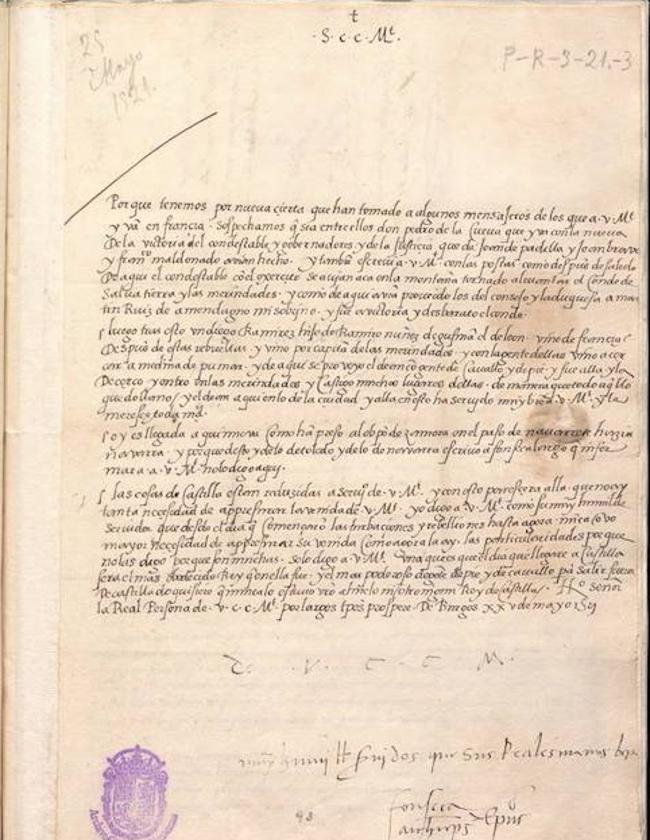 25
Mayo
1521.
P-R-S-21.-3
†
.S.c.c.Mt.
Por que tenemos por nueva cierta que han tomado a algunos mensajeros de los que a .v. Mt
y van en francia. Sospechamos q sea entre ellos don pedro de la Cueva que yva con la nueva
De la victoria del condestable y governadores y de la Justicia que de Joan de padilla y Joan bravo
y franco maldonado avian hecho. y tambien a .v. Mt. con las postas como despues de
De aqui el condestable con el exercito se avian aca en la montaña tornado a levantar el Conde de
Salvatierra y las merindades. y como de aqui avian proveydo los del consejo y la duquesa a mar
tin Ruiz de avendagno mi sobrino. y fue a victoria y desbarato el conde.
luego tras esto un diego Ramirez hijo de Ramiro nuñez de guzman el de leon. vino de francia
Despues de estas rebueltas y vino por capitan de las merindades. y con la gente dellas vino a cer
car a medina de pumar. y de aqui se proveyo el de con gente de Cavallo y de pie. y fue alla y lo
Decerco y entro en las merindades y Castigo muchos lugares dellas. de manera que todo aqllo
queda llano/ y el de aqui en lo de la ciudad y alla en esto ha servido muy bien a .v. Mt. y
merece toda md.
oy es llegada aqui nueva Como han preso al obpo de zamora en el paso de navarrete hazia
navarra. y porque desto y de lo de toledo y de lo de navarra escrivo a fonseca luengo q infor
mara a .v. M. no lo digo aqui.
las cosas de Castilla estan reduzidas a servo de .v. Mt. y con esto alla. que no ay
tanta necesidad de appresurar la venida de .v. Mt. yo digo a .v. Mt. como su muy humilde
Servidor que desde el dia q Començaro las turbaciones y rebelliones hasta agora. nunca ovo
mayor necesidad de appresurar su venida como agora la ay. las particularidades porque
no las digo porque son muchas. solo digo a .v. Mt. una que es que el dia que llegare a Castilla
sera el mas Rey q en ella fue. y el mas poderoso de gente de pie y de cavallo pa salir fuera
De castilla do quisiere q nunca lo estuvo vro ahuelo ni otro ningun Rey de castilla/. Nro señor
la Real Persona de .v. c. c. Mt. por largos tpos prospere. De Burgos xxv de mayo 1521
De .V. C. C. M.
muy humil que sus Reales manos besa
Fonseca
Epus
98